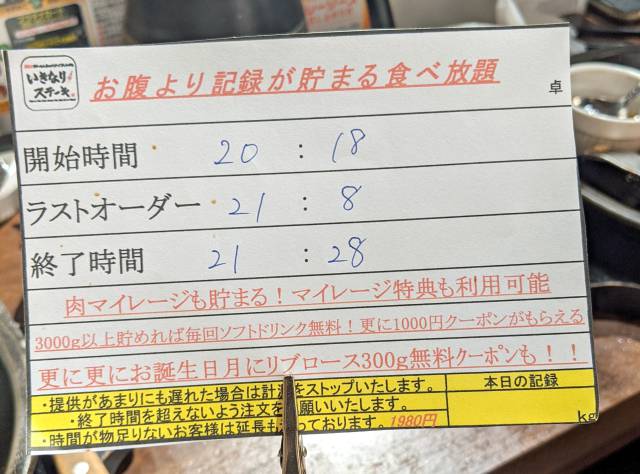 いきなり
ステーキ
お腹より記録が貯まる食べ放題
卓
開始時間 20 : 18
ラストオーダー 21 : 8
終了時間 21 : 28
肉マイレージも貯まる！マイレージ特典も利用可能
3000g以上貯めれば毎回ソフトドリンク無料！更に1000円クーポンがもらえる
更に更にお誕生日月にリブロース300g無料クーポンも！！
・提供があまりにも遅れた場合は計 をストップいたします。
・終了時間を超えないよう注文を 願いいたします。
・時間が物足りないお客様は延長も っております。1980円
本日の記録
kg